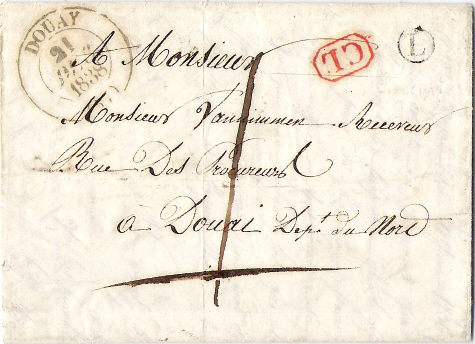 DOUAY
21
1838
CL
L
A Monsieur
Monsieur Receveur
Rue Des Procureurs
à Douai Dept du Nord
1